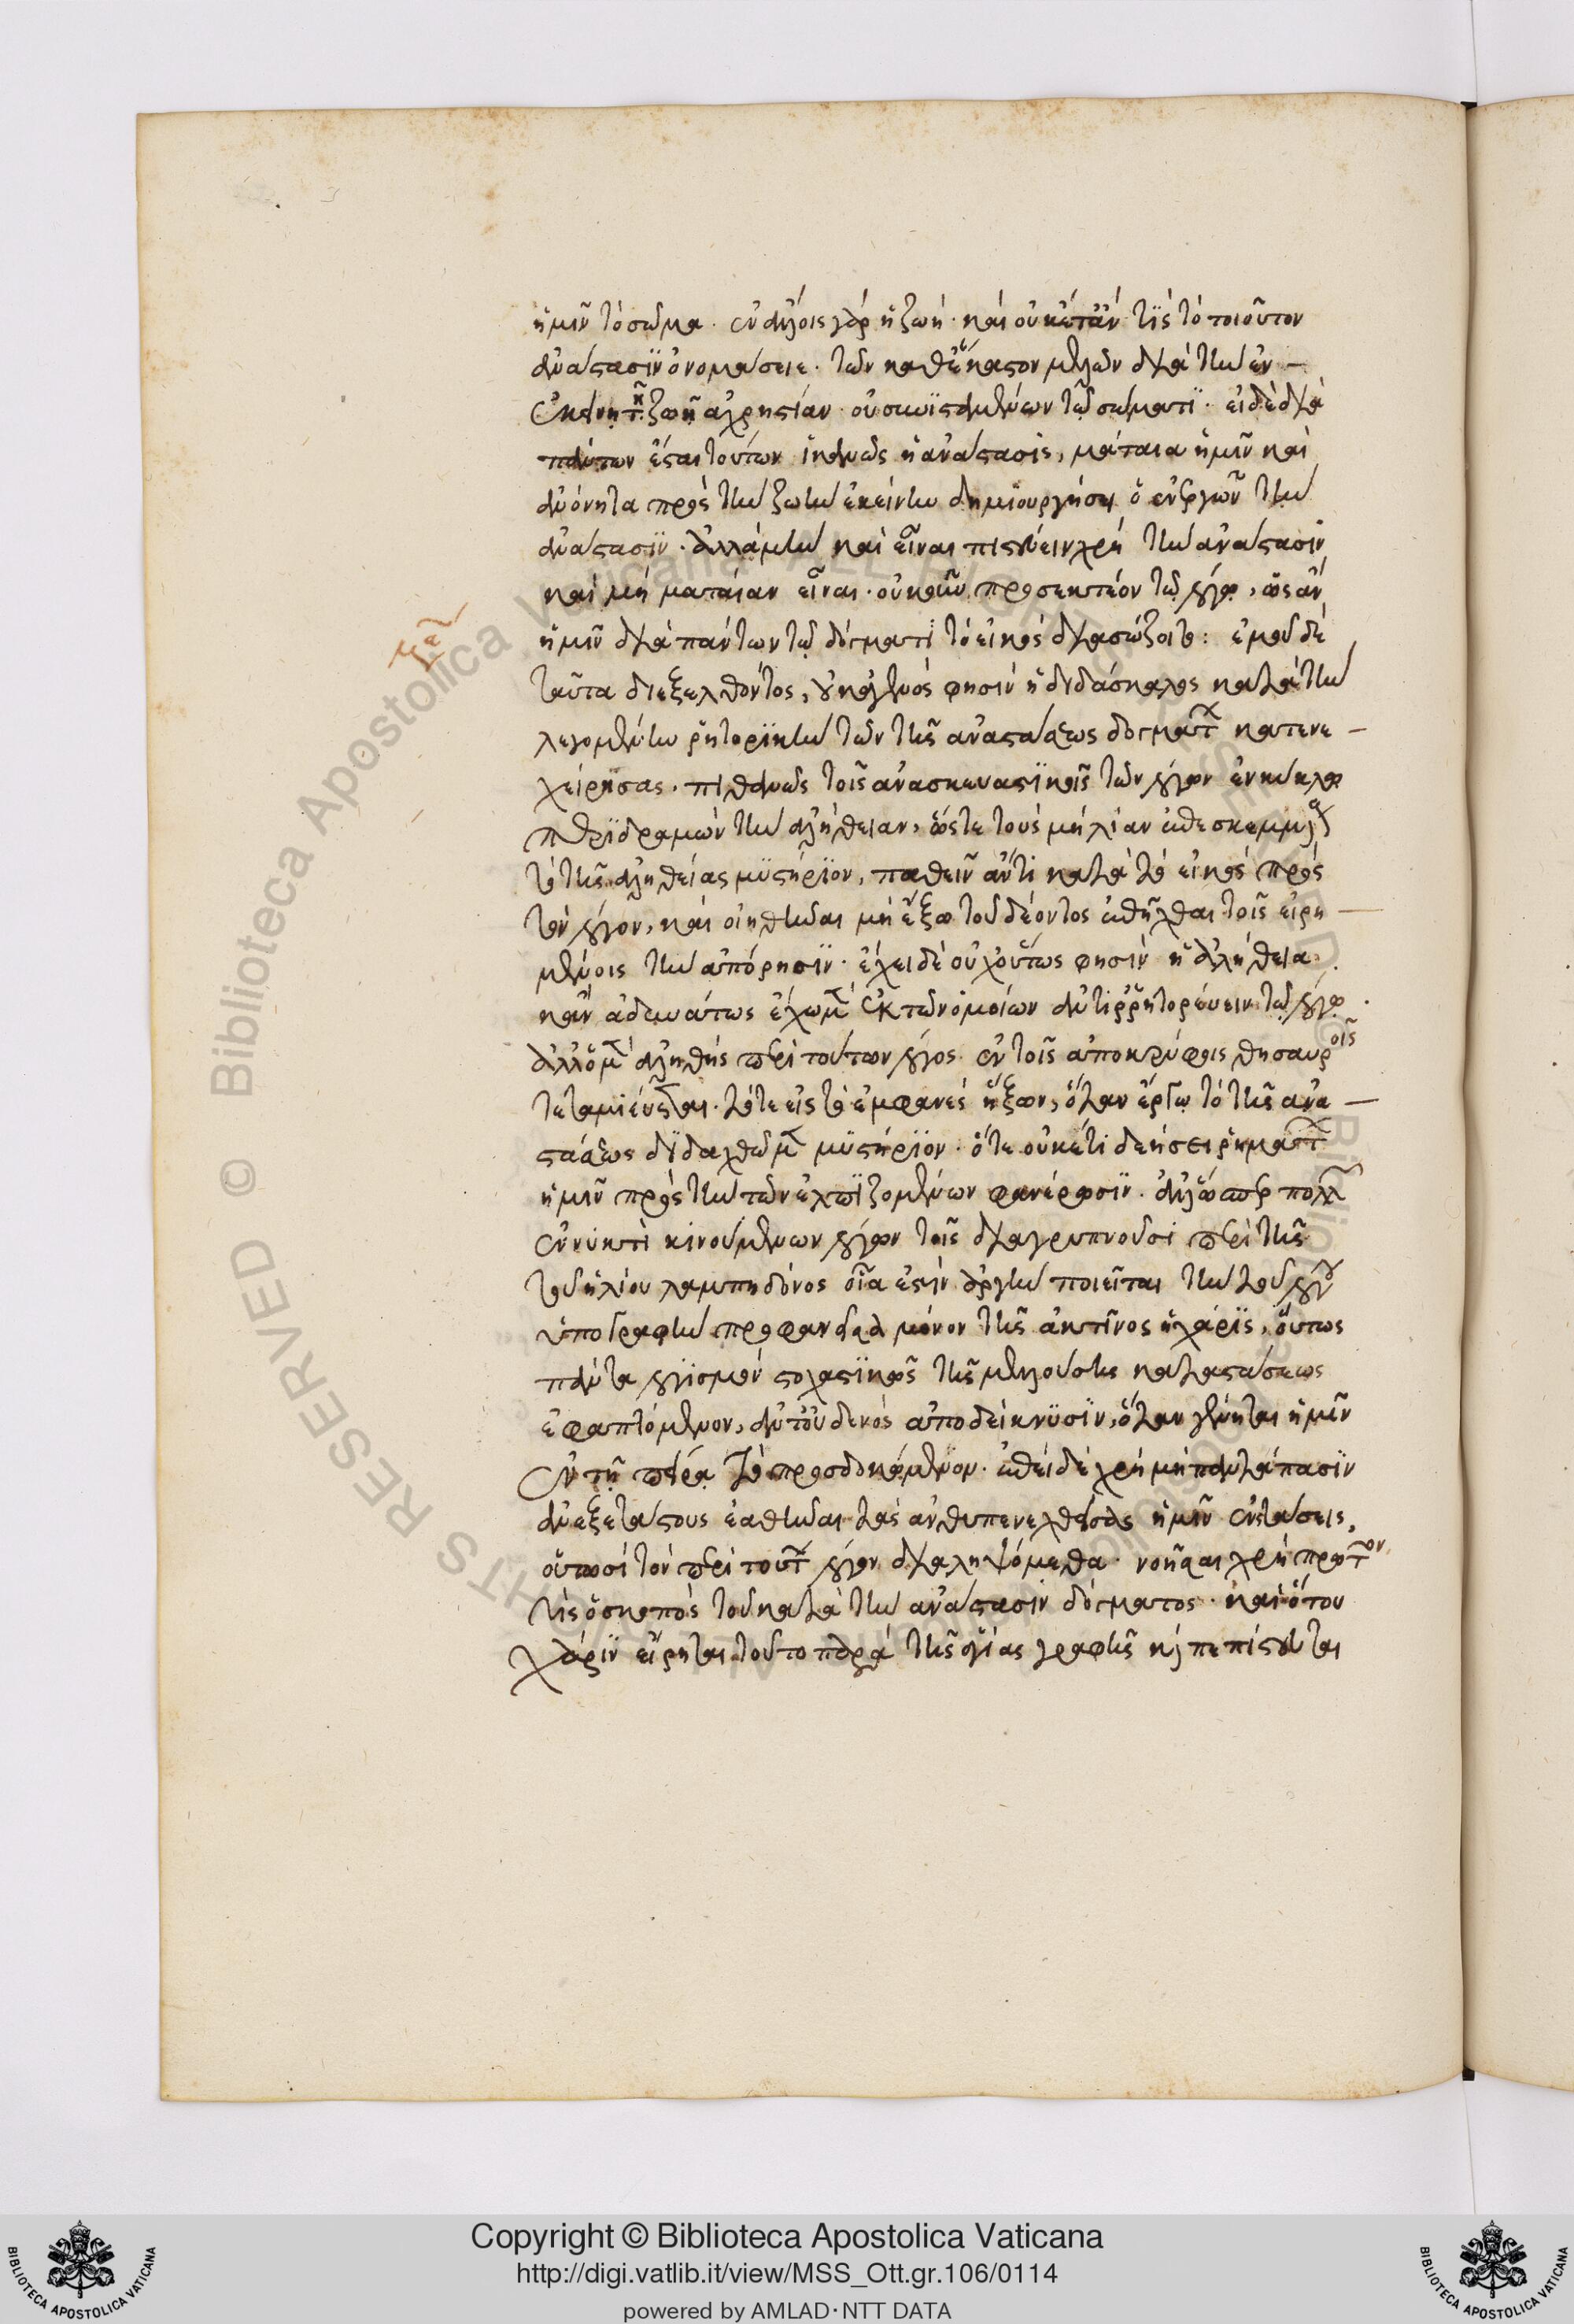 ἡμῖν τὸ σῶμα. ἐν αὐτοῖς γὰρ ἡ ζωή. καὶ οὐκέτ' ἄν τις τὸ τοιοῦτον
ἀνάστασιν ὀνομάσειε. τῶν καθ' ἕκαστον μελῶν διὰ τὴν ἐν
ἐκείνῃ τῇ ζωῇ ἀχρηστίαν οὐ συνισταμένων τῷ σώματι. εἰ δὲ διὰ
πάντων ἔσται τούτων ἱκανῶς ἡ ἀνάστασις, μάταια ἡμῖν καὶ
ἀνόνητα πρὸς τὴν ζωὴν ἐκείνην δημιουργήσει ὁ ἐνεργῶν τὴν
ἀνάστασιν. ἀλλὰ μὴν καὶ εἶναι πιστεύειν χρὴ τὴν ἀνάστασιν
καὶ μὴ ματαίαν εἶναι. οὐκοῦν προσεκτέον τῷ λόγῳ, ὡς ἂν
ἡμῖν διὰ πάντων τῷ δόγματι τὸ εἰκὸς διασώζοιτο: ἐμοῦ δὲ
ταῦτα διεξελθόντος, οὐκ ἀγεννῶς φησὶν ἡ διδάσκαλος κατὰ τὴν
λεγομένην ῥητορικὴν τῶν τῆς ἀναστάσεως δογμάτων κατενε
χείρησας. πιθανῶς τοῖς ἀνασκευαστικοῖς τῶν λόγων ἐν κύκλῳ
περιδραμὼν τὴν ἀλήθειαν, ὥστε τοὺς μὴ λίαν ἐπεσκεμμένους
τὸ τῆς ἀληθείας μυστήριον, παθεῖν ἄν τι κατὰ τὸ εἰκὸς πρὸς
τὸν λόγον, καὶ οἰηθῆναι μὴ ἔξω τοῦ δέοντος ἐπῆχθαι τοῖς εἰρη
μένοις τὴν ἀπόρησιν. ἔχει δὲ οὐχ οὕτως φησὶν ἡ ἀλήθεια.
κἂν ἀδυνάτως ἔχωμεν ἐκ τῶν ὁμοίων ἀντιρρητορεύειν τῷ λόγῳ.
ἀλλ' ὁ μὲν ἀληθὴς περὶ τούτων λόγος. ἐν τοῖς ἀποκρύφοις θησαυροῖς
τεταμίευται. τότε εἰς τὸ ἐμφανὲς ἥξων, ὅταν ἔργῳ τὸ τῆς ἀνα
στάσεως διδαχθῶμεν μυστήριον. ὅτε οὐκέτι δεήσει ῥημάτων
ἡμῖν πρὸς τὴν τῶν ἐλπιζομένων φανέρωσιν. ἀλλ' ὥσπερ πολλῶν
ἐν νυκτὶ κινουμένων λόγων τοῖς διαγρυπνοῦσι περὶ τῆς
τοῦ ἡλίου λαμπηδόνος οἵα ἐστὶν ἀργὴν ποιεῖται τὴν τοῦ λόγου
ὑπογραφὴν προφανεῖσα μόνον τῆς ἀκτῖνος ἡ χάρις, οὕτως
πάντα λογισμὸν στοχαστικῶς τῆς μελλούσης καταστάσεως
ἐφαπτόμενον, ἀντ' οὐδενὸς ἀποδείκνυσιν, ὅταν γένηται ἡμῖν
ἐν τῇ πείρᾳ τὸ προσδοκώμενον. ἐπεὶ δὲ χρὴ μὴ παντάπασιν
ἀνεξετάστους ἐαθῆναι τὰς ἀνθυπενεχθείσας ἡμῖν ἐνστάσεις,
οὑτωσὶ τὸν περὶ τούτων λόγον διαληψόμεθα. νοῆσαι χρὴ πρῶτον
τίς ὁ σκοπὸς τοῦ κατὰ τὴν ἀνάστασιν δόγματος. καὶ ὅτου
χάριν εἴρηται τοῦτο παρὰ τῆς ἁγίας γραφῆς καὶ πεπίστευται
Copyright © Biblioteca Apostolica Vaticana
http://digi.vatlib.it/view/MSS_Ott.gr.106/0114
powered by AMLAD·NTT DATA
BIBLIOTECA APOSTOLICA VATICANA
BIBLIOTECA APOSTOLICA VATICANA